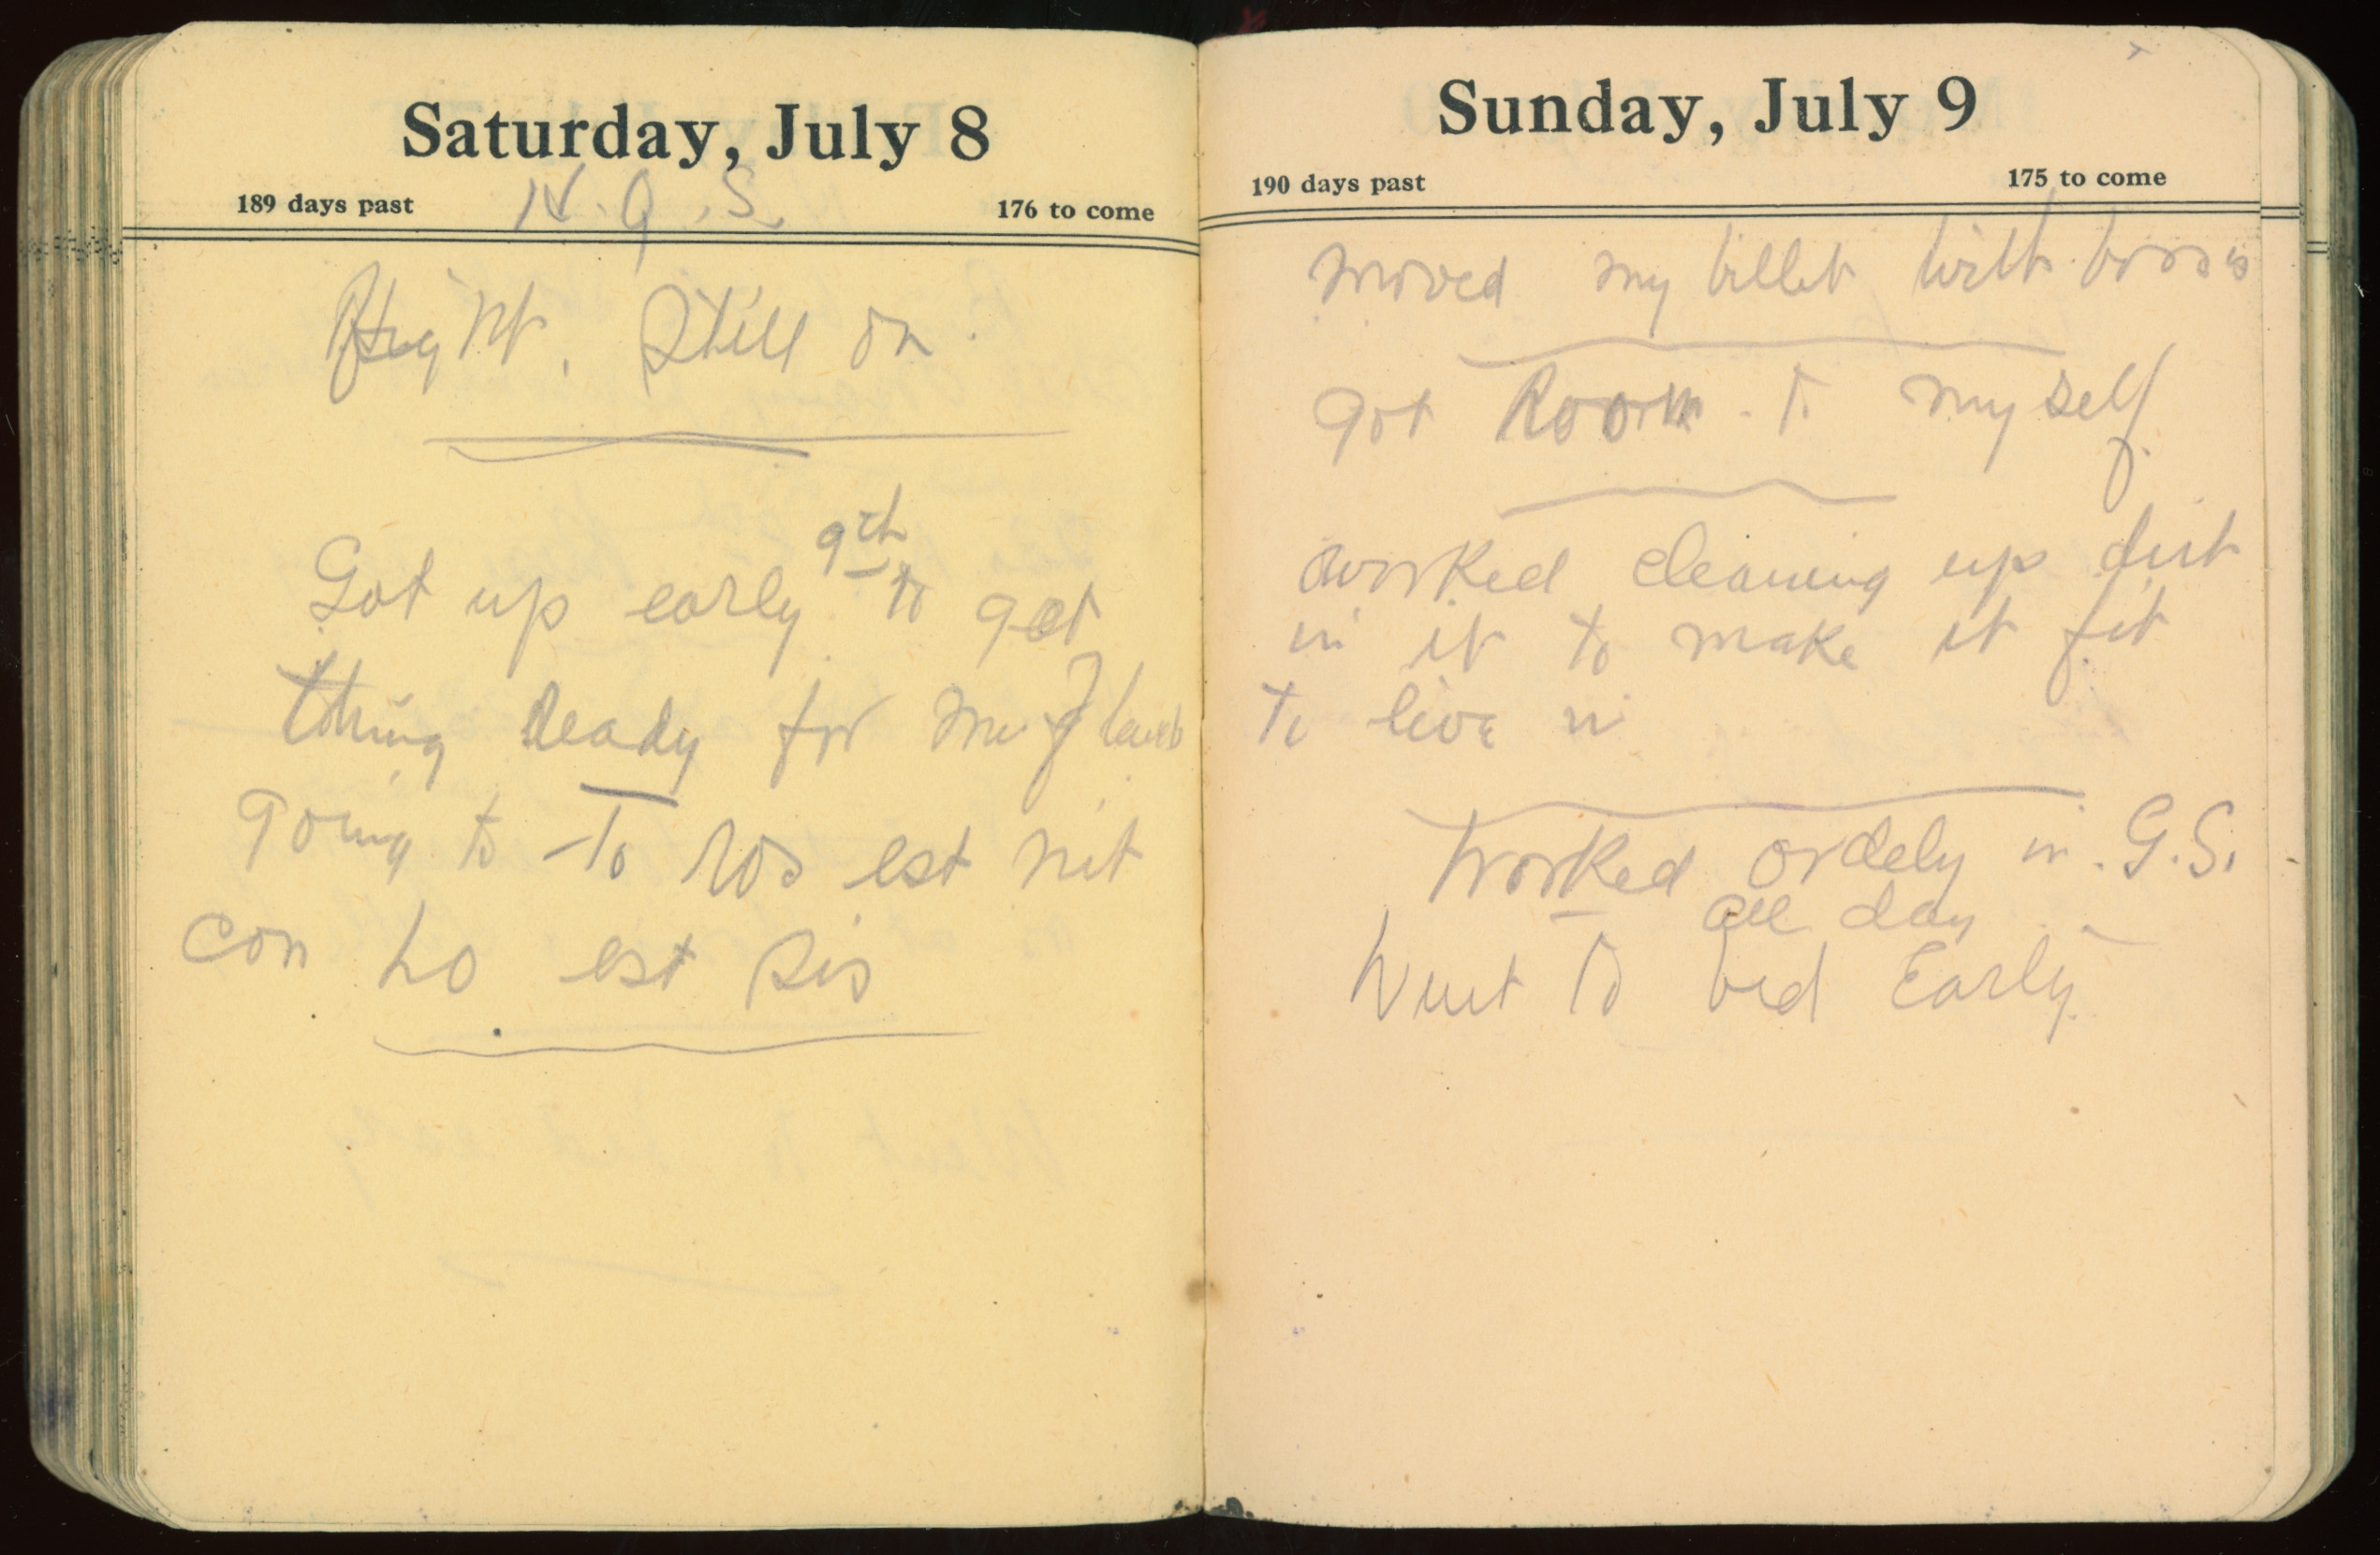 Saturday, July 8
189 days past
176 to come
Still on.
9th
Got up early to get
thing Ready for
going to To ros est nit
con ho est sis
Sunday, July 9
190 days past
175 to come
moved my billet with
got Room to myself
worked cleaning up dirt
in it to make it fit
to live in
Worked ordely in G.S.
all day
Went to bed Early